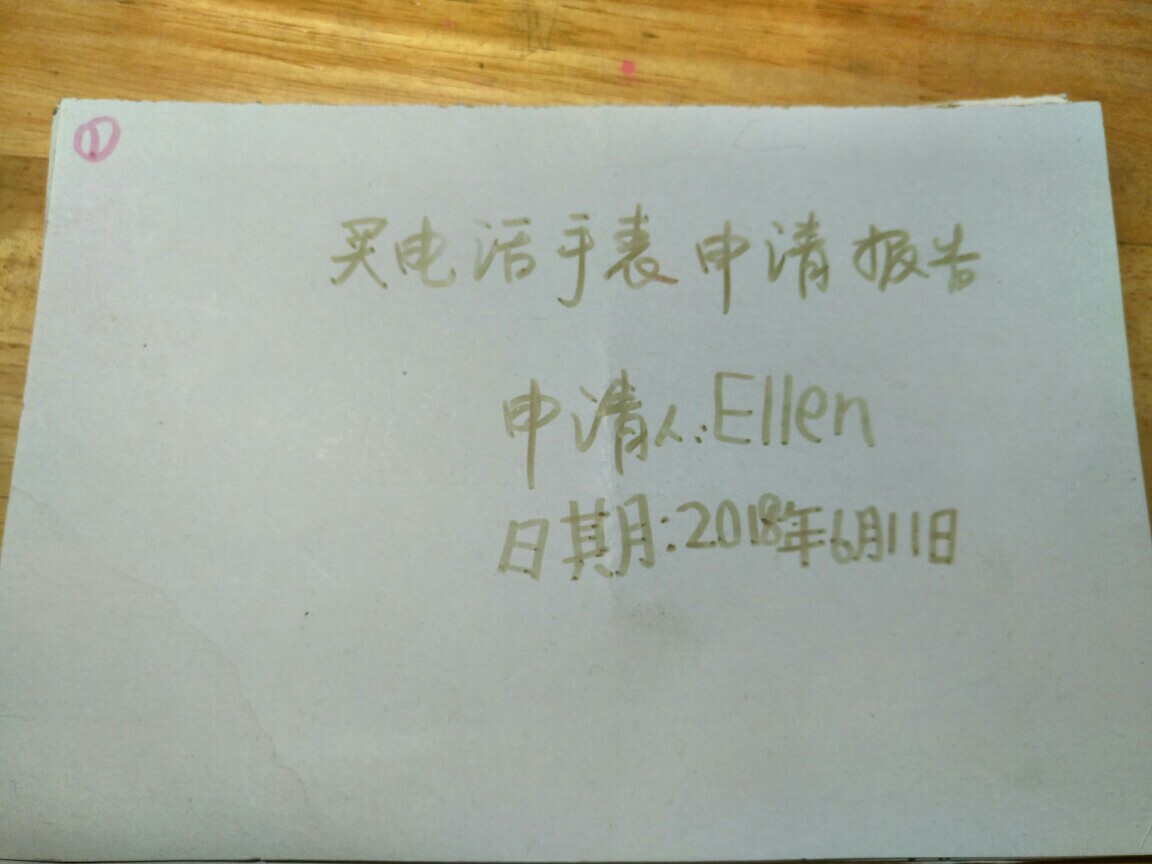 ①
买电话手表申请报告
申请人:Ellen
日期:2018年6月11日